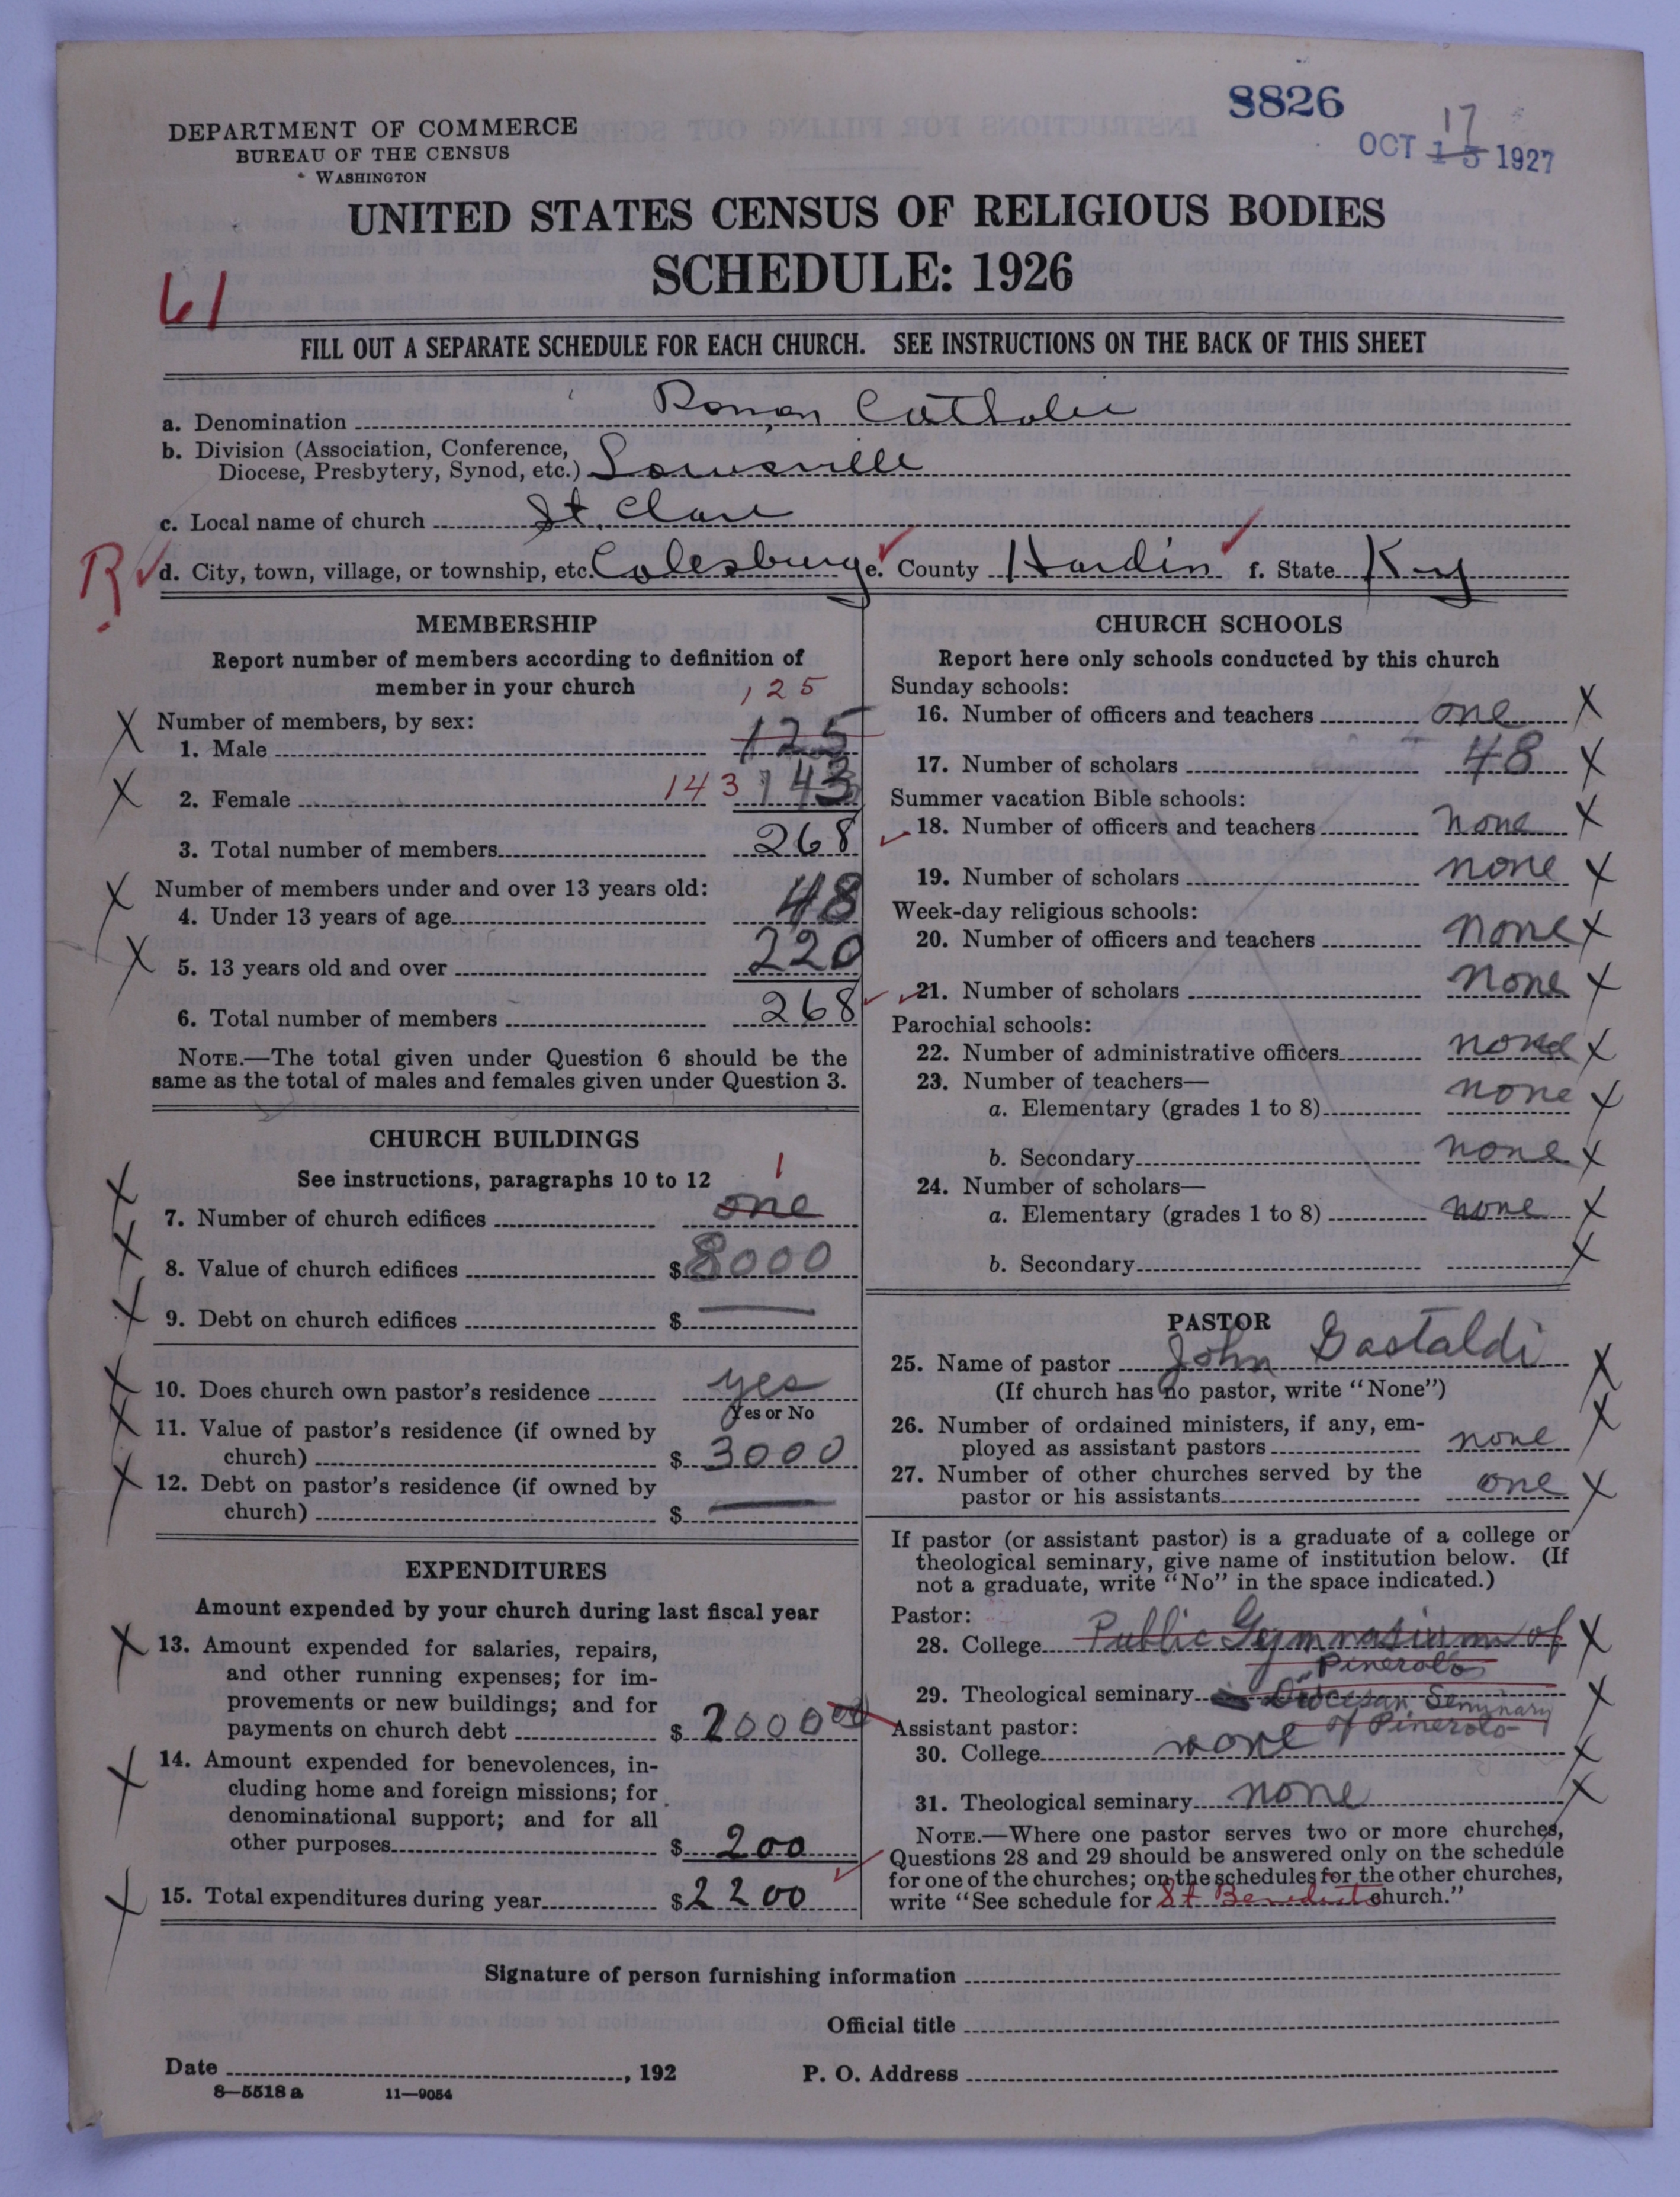 8826
17
OCT 15 1927
DEPARTMENT OF COMMERCE
BUREAU OF THE CENSUS
WASHINGTON
UNITED STATES CENSUS OF RELIGIOUS BODIES
SCHEDULE: 1926
61
FILL OUT A SEPARATE SCHEDULE FOR EACH CHURCH. SEE INSTRUCTIONS ON THE BACK OF THIS SHEET
a. Denomination Roman Catholic
b. Division (Association, Conference,
Diocese, Presbytery, Synod, etc.) Louisville
c. Local name of church St. Clare
R d. City, town, village, or township, etc. Colesburg e. County Hardin f. State Ky
MEMBERSHIP
Report number of members according to definition of
member in your church
125
Number of members, by sex:
1. Male 125
2. Female 143 143
3. Total number of members 268
Number of members under and over 13 years old:
4. Under 13 years of age 48
5. 13 years old and over 220
6. Total number of members 268
NOTE.—The total given under Question 6 should be the
same as the total of males and females given under Question 3.
CHURCH BUILDINGS
See instructions, paragraphs 10 to 12
1
7. Number of church edifices one
8. Value of church edifices $ 8000
9. Debt on church edifices $ —
10. Does church own pastor's residence yes
Yes or No
11. Value of pastor's residence (if owned by
church) $ 3000
12. Debt on pastor's residence (if owned by
church) $ —
EXPENDITURES
Amount expended by your church during last fiscal year
13. Amount expended for salaries, repairs,
and other running expenses; for im-
provements or new buildings; and for
payments on church debt $ 2000 00
14. Amount expended for benevolences, in-
cluding home and foreign missions; for
denominational support; and for all
other purposes $ 200
15. Total expenditures during year $ 2200
CHURCH SCHOOLS
Report here only schools conducted by this church
Sunday schools:
16. Number of officers and teachers one
17. Number of scholars 48
Summer vacation Bible schools:
18. Number of officers and teachers none
19. Number of scholars none
Week-day religious schools:
20. Number of officers and teachers none
21. Number of scholars none
Parochial schools:
22. Number of administrative officers none
23. Number of teachers—
a. Elementary (grades 1 to 8) none
b. Secondary none
24. Number of scholars—
a. Elementary (grades 1 to 8) none
b. Secondary
PASTOR
25. Name of pastor John Gastaldi
(If church has no pastor, write "None")
26. Number of ordained ministers, if any, em-
ployed as assistant pastors none
27. Number of other churches served by the
pastor or his assistants one
If pastor (or assistant pastor) is a graduate of a college or
theological seminary, give name of institution below. (If
not a graduate, write "No" in the space indicated.)
Pastor:
28. College Public Gymnasium of
Pinerolo
29. Theological seminary Diocesan Seminary
of Pinerolo
Assistant pastor:
30. College none
31. Theological seminary none
NOTE.—Where one pastor serves two or more churches,
Questions 28 and 29 should be answered only on the schedule
for one of the churches; on the schedules for the other churches,
write "See schedule for St Benedicts church."
Signature of person furnishing information
Official title
Date , 192
P. O. Address
8—5518 a 11—9054